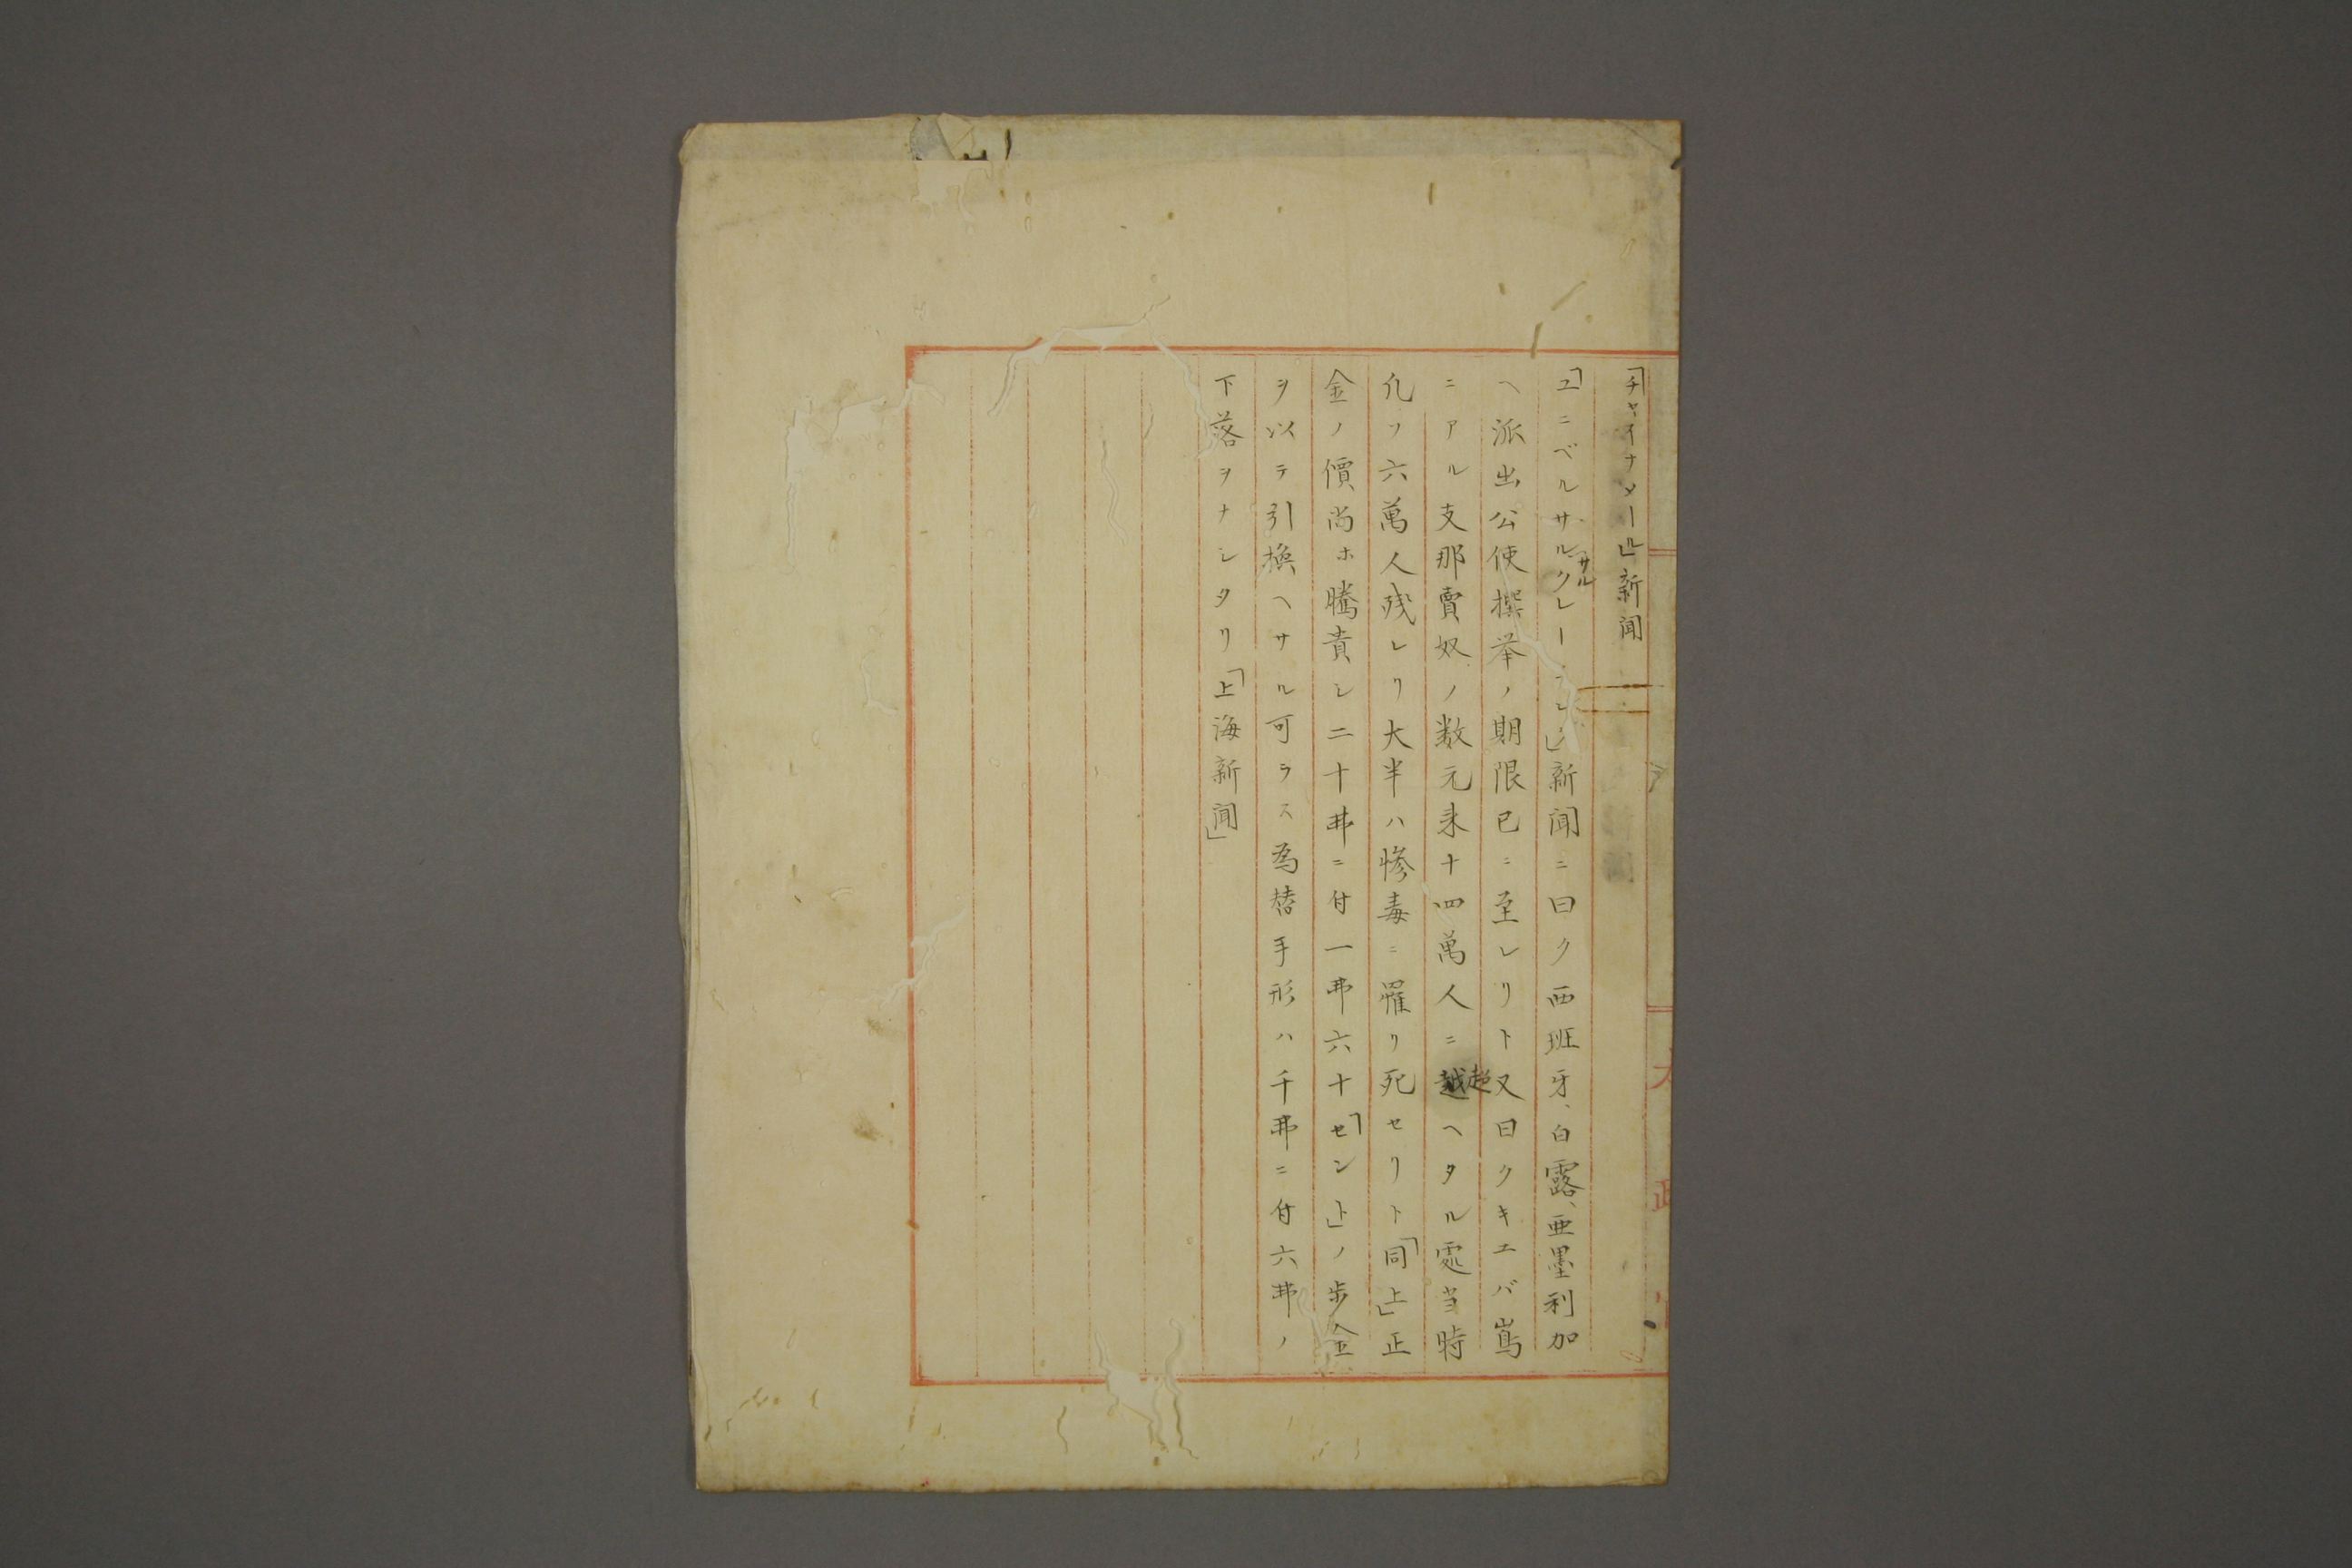 「チャイナメール」新聞
「ユニベルサルクレーシヨン」新聞ニ曰ク西班牙、白露、亜墨利加
サル
ヘ派出公使撰挙ノ期限已ニ至レリト又曰クキエバ嶌
ニアル支那賣奴ノ数元来十四萬人ニ越ヘタル處当時
超
凢ソ六萬人残レリ大半ハ惨毒ニ罹リ死セリト「同上」正
金ノ價尚ホ騰貴シ二十弗ニ付一弗六十「セント」ノ歩金
ヲ以テ引換ヘサル可ラス為替手形ハ千弗ニ付六弗ノ
下落ヲナシタリ「上海新聞」
太政官